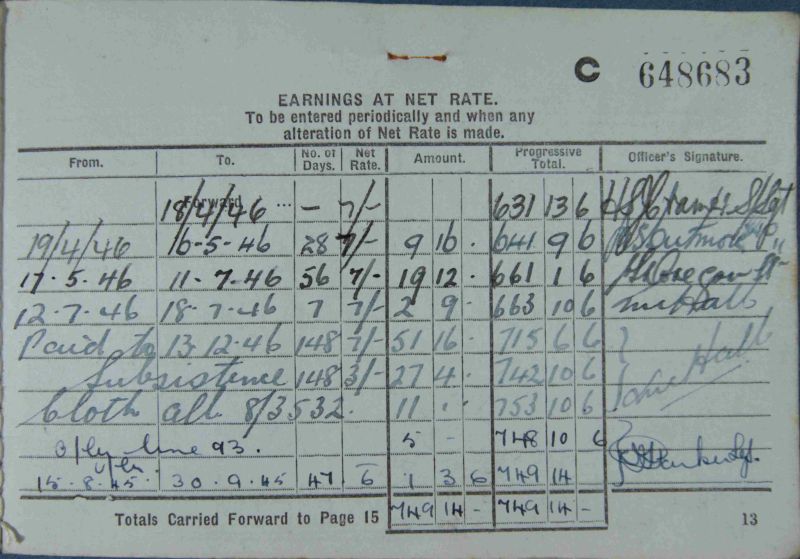 C 648683
EARNINGS AT NET RATE.
To be entered periodically and when any
alteration of Net Rate is made.
From. To. No. of Days. Net Rate. Amount. Progressive Total. Officer's Signature.
Forward ...
18/4/46 - 7/- 631 13 6 S/Sgt
19/4/46 16-5-46 28 7/- 9 16 . 641 9 6
17.5.46 11.7.46 56 7/- 19 12 . 661 1 6
12.7.46 18.7.46 7 7/- 2 9 . 663 10 6
Paid to 13-12-46 148 7/- 51 16 . 715 6 6
Subsistence 148 3/- 27 4 . 742 10 6
Cloth all 8/3532. 11 . . 753 10 6
line 93. 5 - 748 10 6
15.8.45. 30.9.45 47 6 1 3 6 749 14
Totals Carried Forward to Page 15 749 14 - 749 14 -
13